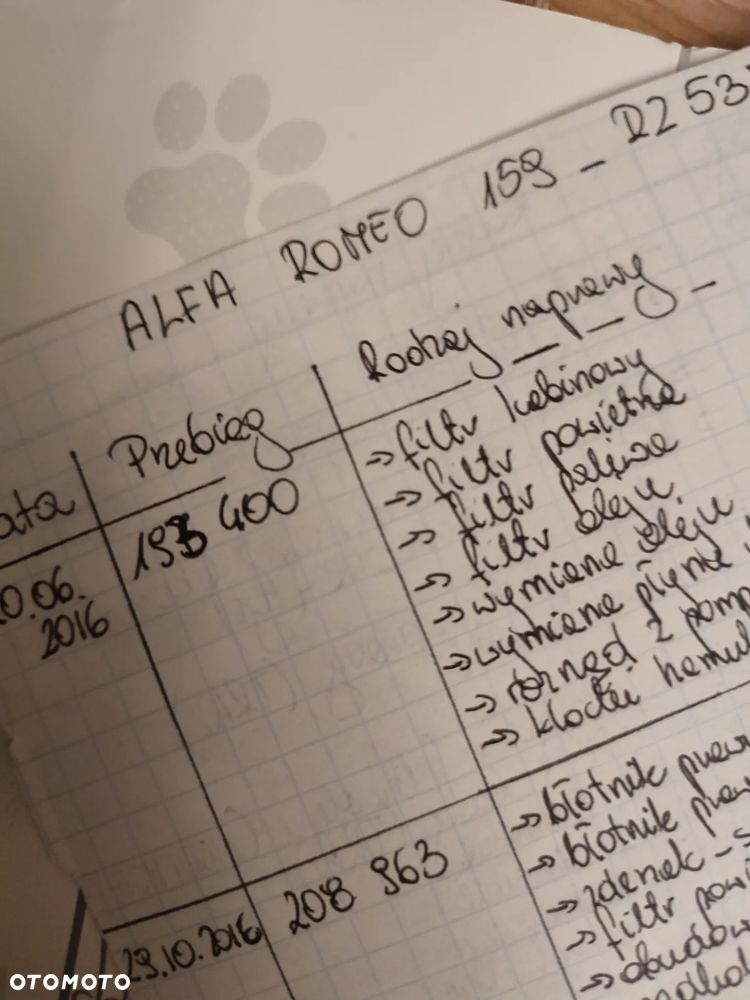 ALFA ROMEO 159 - DZ 53
ata Przebieg Rodzaj naprawy
0.06. 2016 193 400
→ filtr kabinowy
→ filtr powietrza
→ filtr paliwa
→ filtr oleju
→ wymiana oleju
→ wymiana płynu
→ rozrząd z pomp
→ klocki hamul
29.10.2016 208 963
→ błotnik praw
→ błotnik praw
→ zderzak - s
→ filtr powi
→ obudow
OTOMOTO